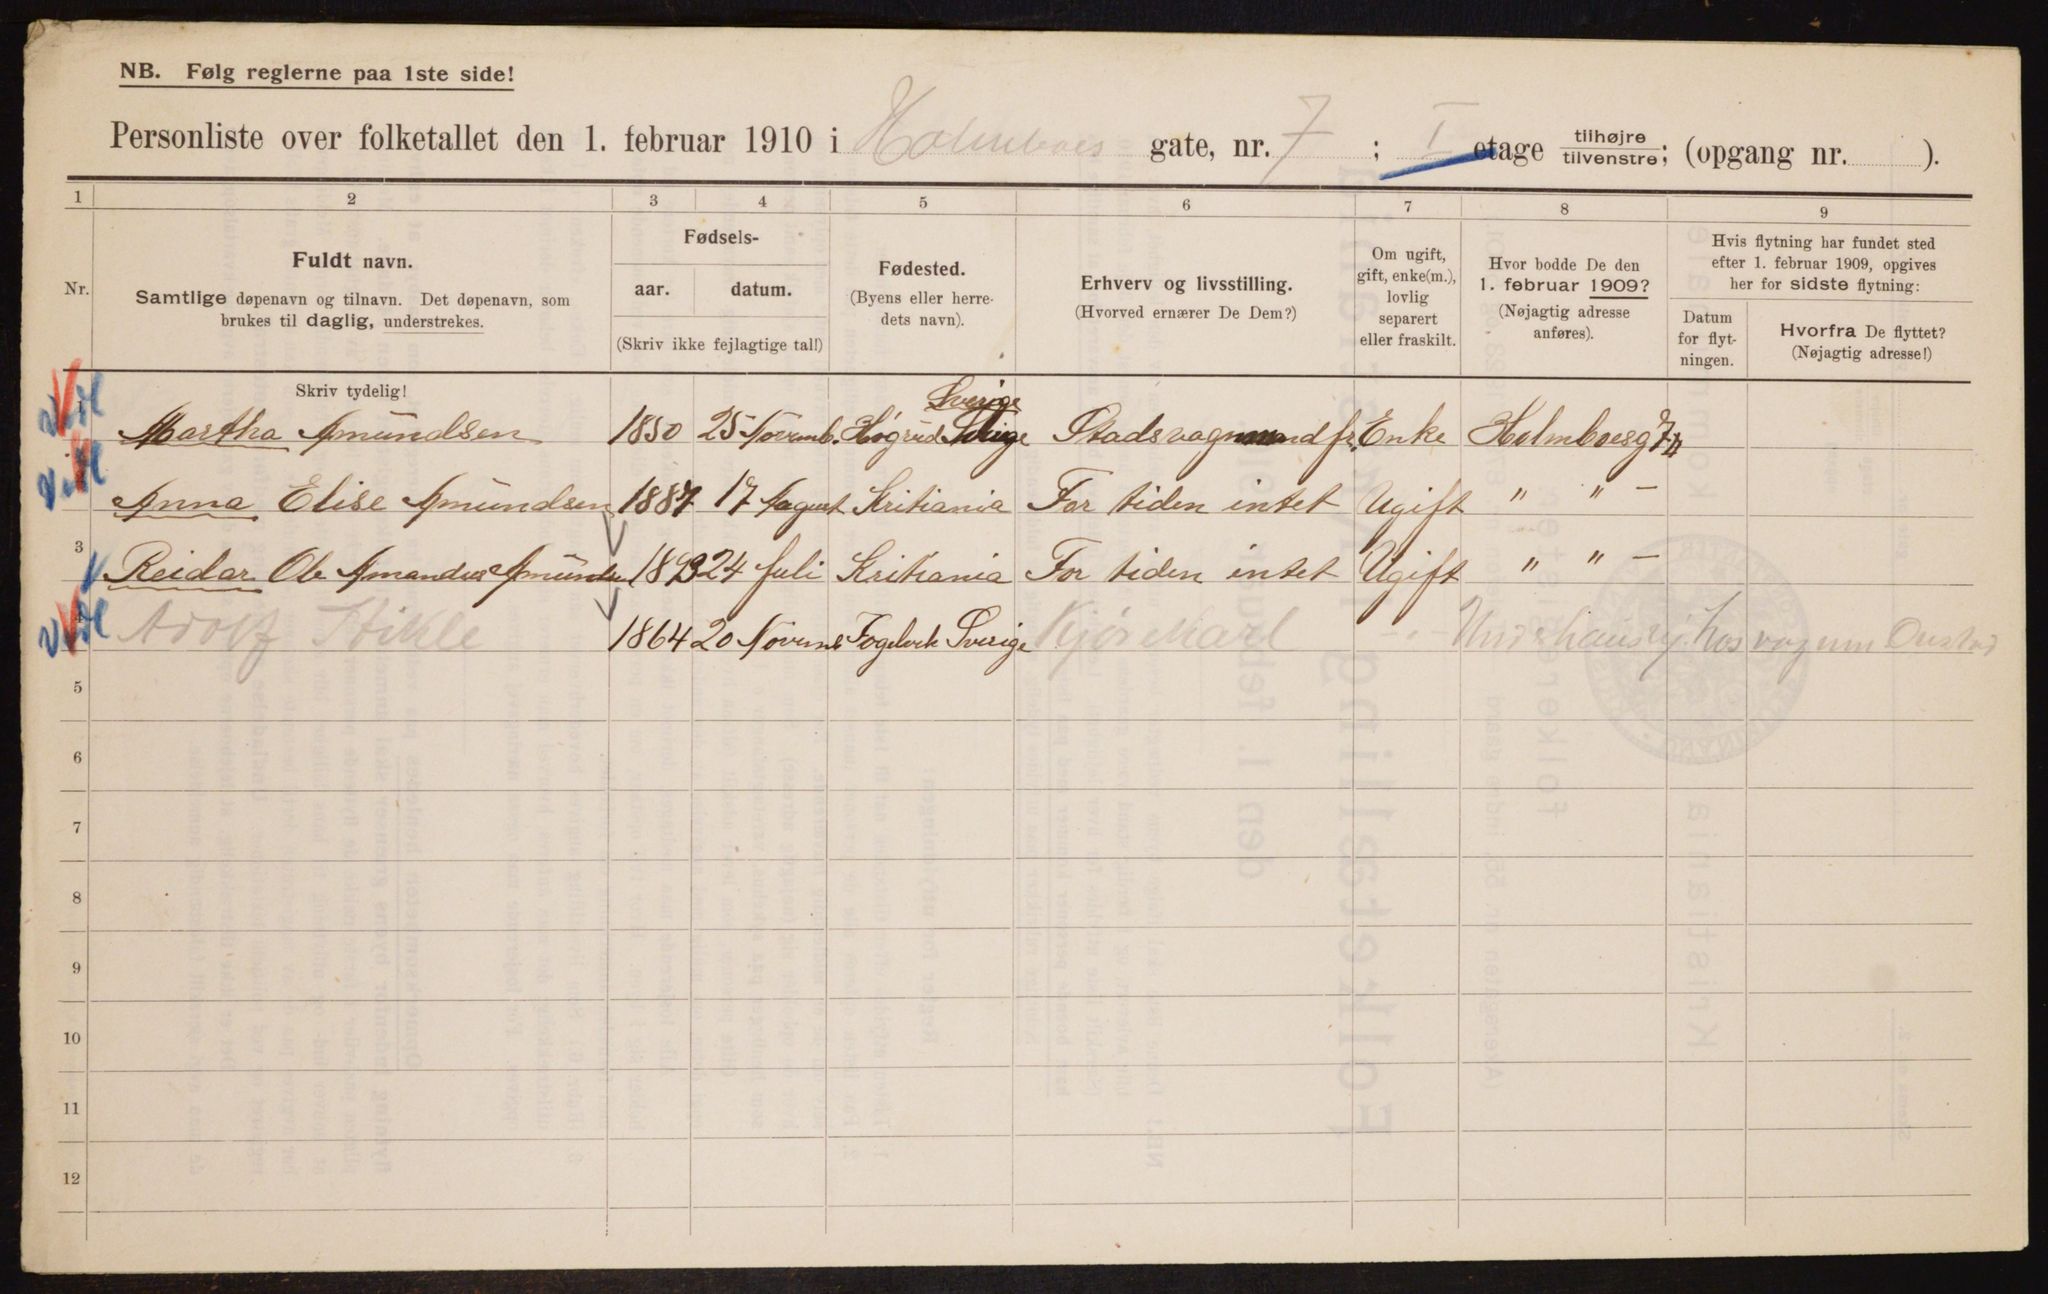 NB. Følg reglerne paa 1ste side!
Personliste over folketallet den 1. februar 1910 i Holmboes gate, nr. 7 ; I etage tilhøjre tilvenstre; (opgang nr. ).
1 2 3 4 5 6 7 8 9
Nr.
Fuldt navn.
Samtlige døpenavn og tilnavn. Det døpenavn, som
brukes til daglig, understrekes.
Fødsels-
aar. datum.
(Skriv ikke fejlagtige tal!)
Fødested.
(Byens eller herre-
dets navn).
Erhverv og livsstilling.
(Hvorved ernærer De Dem?)
Om ugift,
gift, enke(m.),
lovlig
separert
eller fraskilt.
Hvor bodde De den
1. februar 1909?
(Nøjagtig adresse
anføres).
Hvis flytning har fundet sted
efter 1. februar 1909, opgives
her for sidste flytning:
Datum
for flyt-
ningen.
Hvorfra De flyttet?
(Nøjagtig adresse!)
Skriv tydelig!
Sverige
1 Martha Amundsen 1850 25 Novemb. Høgrud Enke Holmboesg 7
Anna Elise Amundsen 1887 17 August Kritiania For tiden intet Ugift " " –
3 Reidar Ole Amandus 1893 24 Juli Kritiania For tiden intet Ugift " " –
4 Adolf 1864 20 Sverige
5
6
7
8
9
10
11
12